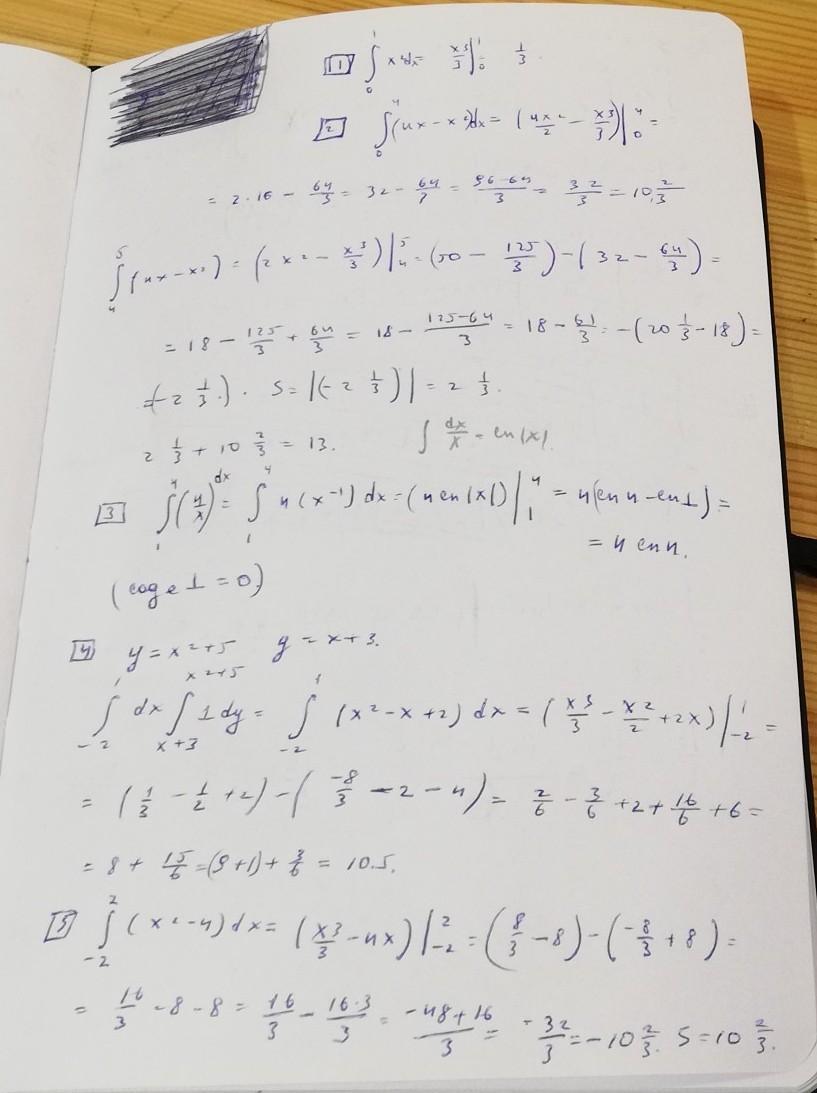 1 ∫₀¹ x²dx = x³/3 |₀¹ = 1/3
2 ∫₀⁴ (4x - x²)dx = (4x²/2 - x³/3)|₀⁴ =
= 2·16 - 64/3 = 32 - 64/3 = (96-64)/3 = 32/3 = 10 2/3
∫₄⁵ (4x - x²) = (2x² - x³/3)|₄⁵ = (50 - 125/3) - (32 - 64/3) =
= 18 - 125/3 + 64/3 = 18 - (125-64)/3 = 18 - 61/3 = -(20 1/3 - 18) =
= (-2 1/3). S = |(-2 1/3)| = 2 1/3.
2 1/3 + 10 2/3 = 13. ∫ dx/x = ln|x|.
3 ∫₁⁴ (4/x)dx = ∫₁⁴ 4(x⁻¹)dx = (4 ln|x|)|₁⁴ = 4(ln4 - ln1) =
= 4 ln4.
(log e 1 = 0)
4 y = x²+5 y = x+3.
∫₋₂¹ dx ∫ₓ₊₃^(x²+5) 1 dy = ∫₋₂¹ (x² - x + 2) dx = (x³/3 - x²/2 + 2x)|₋₂¹ =
= (1/3 - 1/2 + 2) - (-8/3 - 2 - 4) = 2/6 - 3/6 + 2 + 16/6 + 6 =
= 8 + 15/6 = (9+1) + 3/6 = 10.5.
5 ∫₋₂² (x² - 4)dx = (x³/3 - 4x)|₋₂² = (8/3 - 8) - (-8/3 + 8) =
= 16/3 - 8 - 8 = 16/3 - 16·3/3 = (-48+16)/3 = -32/3 = -10 2/3. S = 10 2/3.